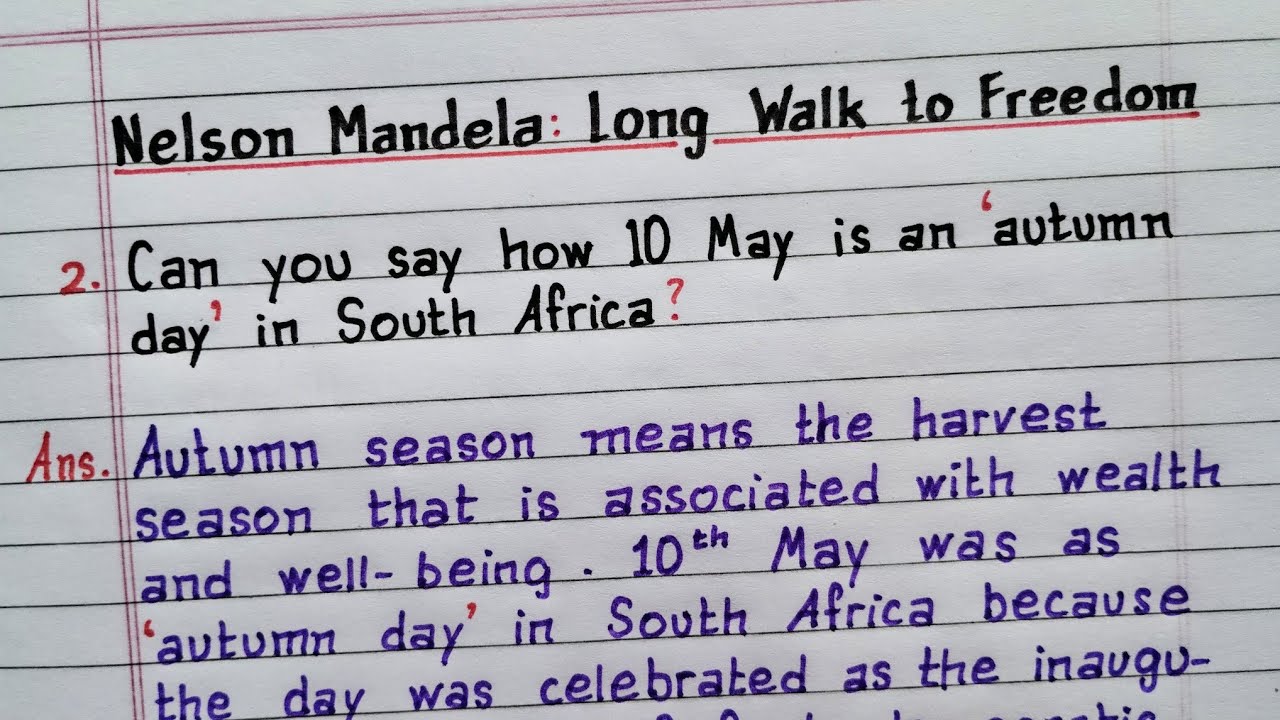 Nelson Mandela: Long Walk to Freedom
2. Can you say how 10 May is an 'autumn
day' in South Africa?
Ans. Autumn season means the harvest
season that is associated with wealth
and well-being. 10th May was as
'autumn day' in South Africa because
the day was celebrated as the inaugu-